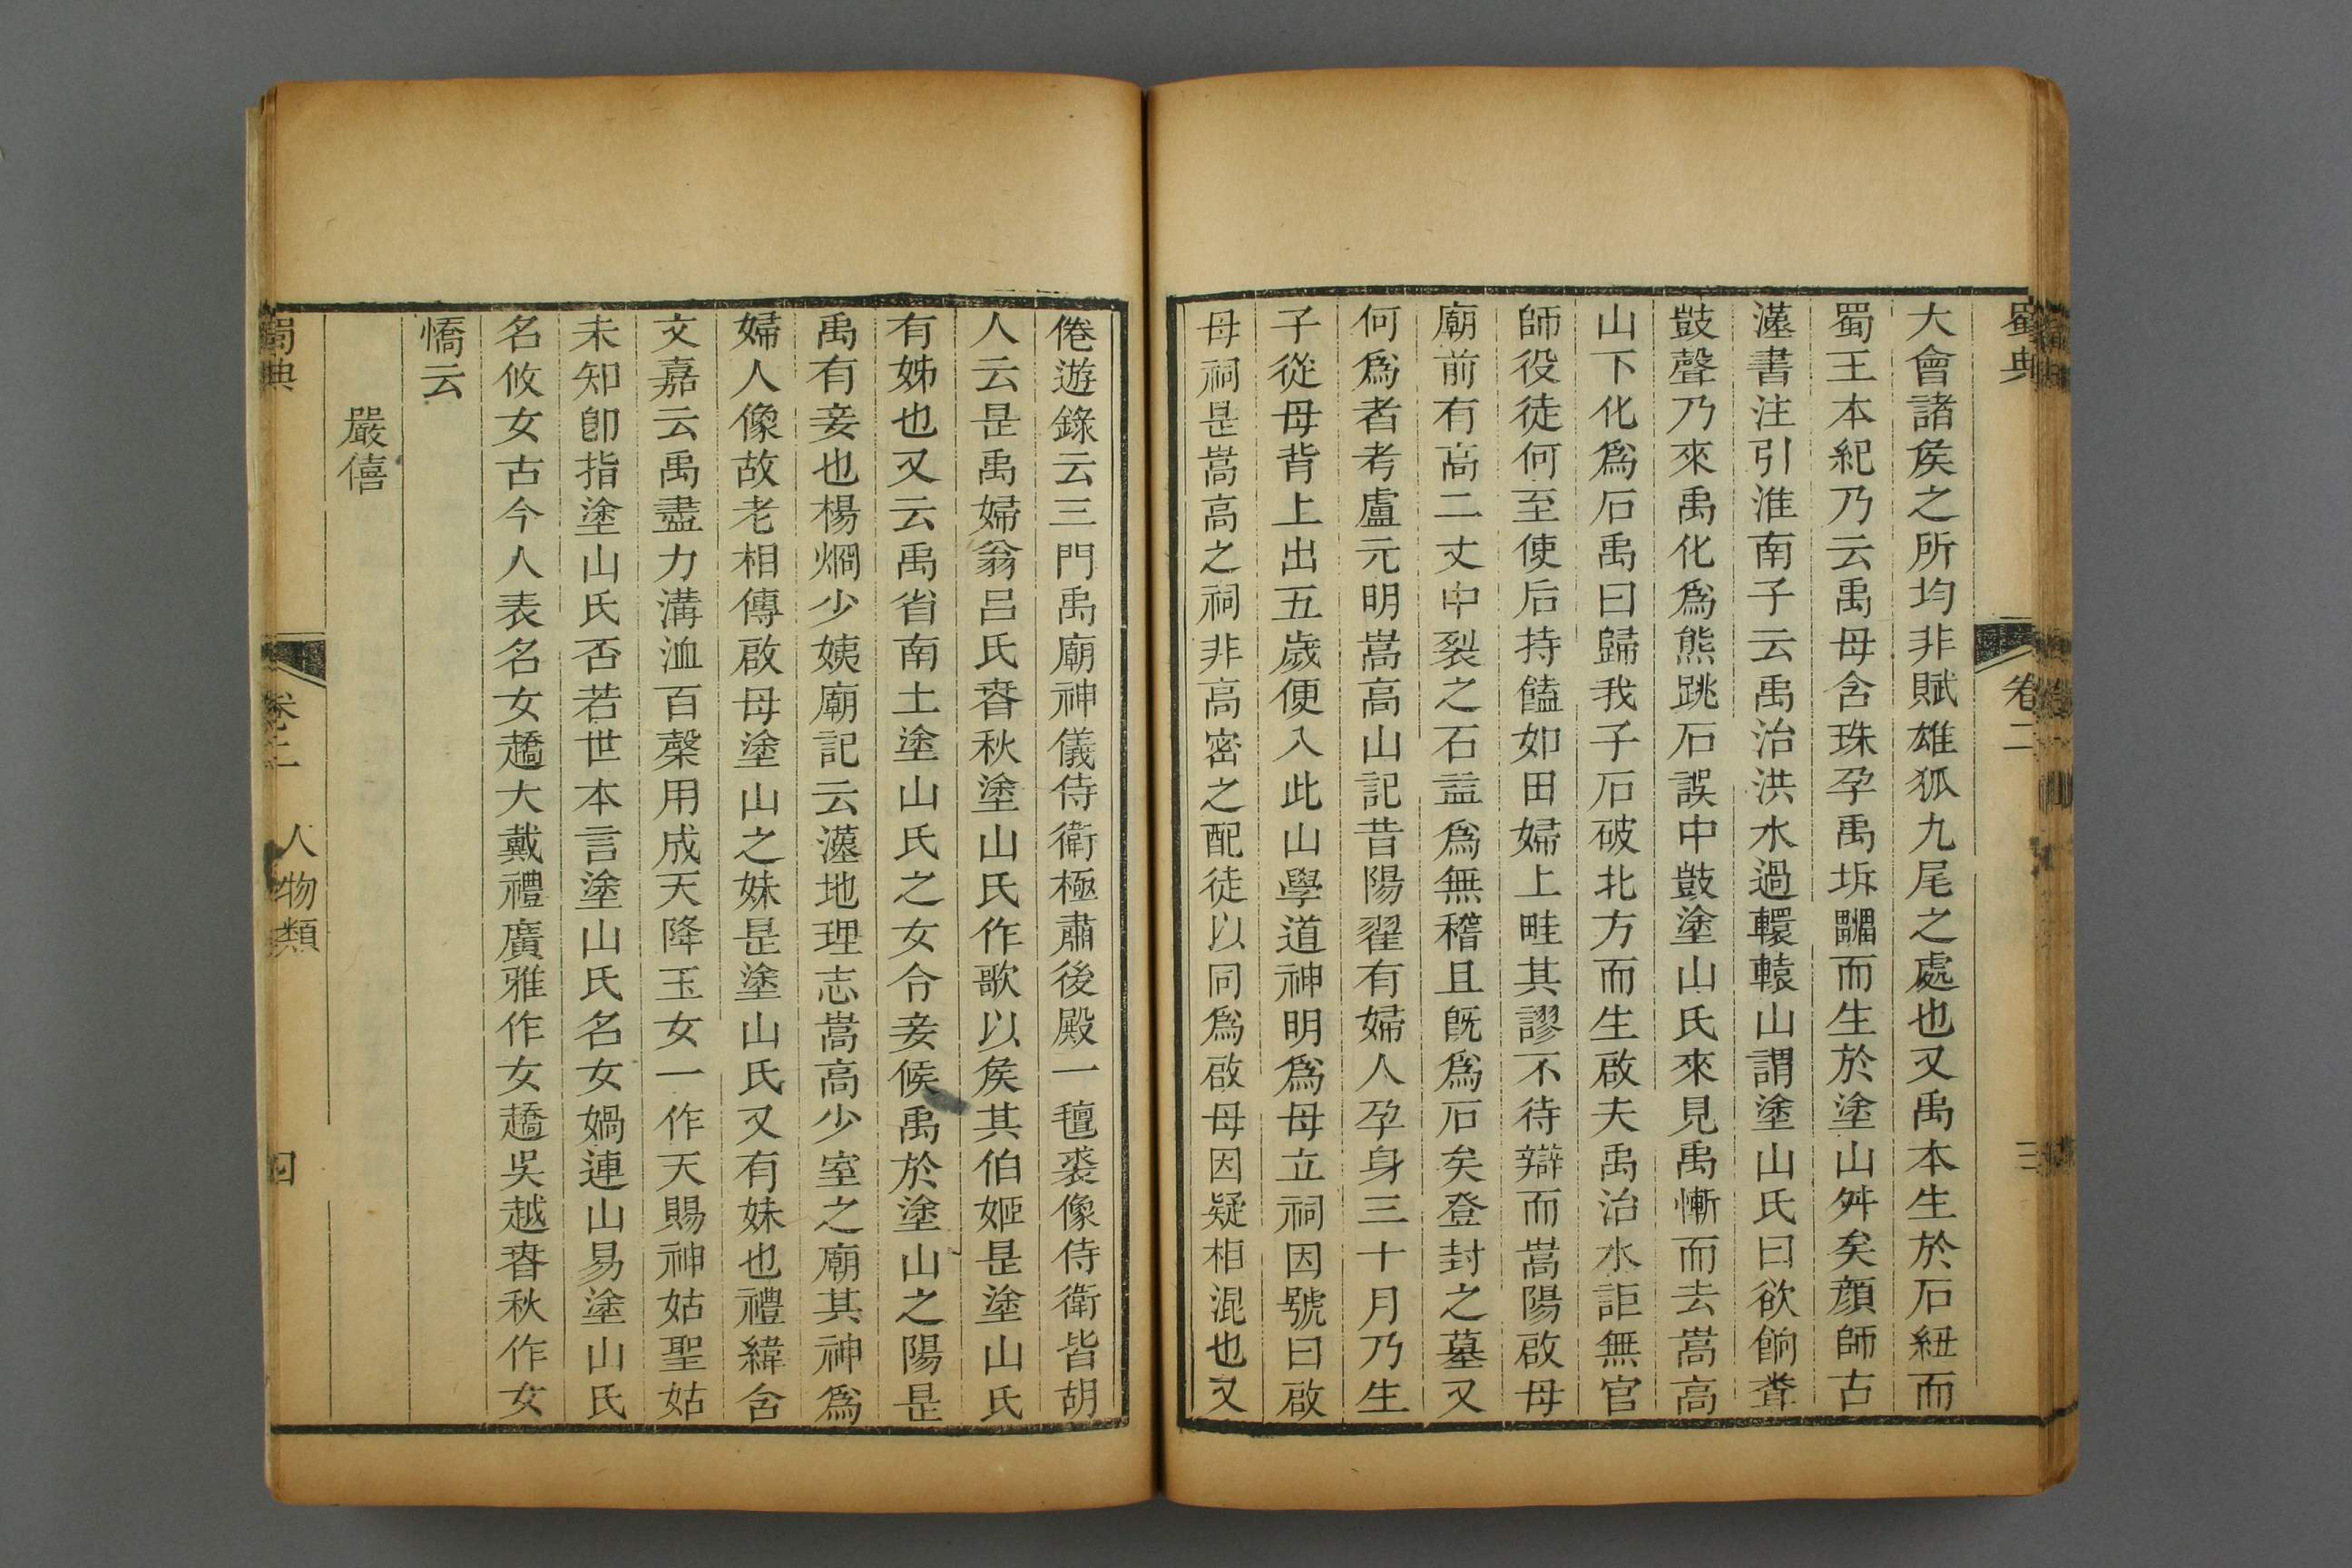 蜀典 卷二 三
大會諸矦之所均非賦雄狐九尾之處也又禹本生於石紐而
蜀王本紀乃云禹母含珠孕禹坼疈而生於塗山舛矣顔師古
漢書注引淮南子云禹治洪水過轘轅山謂塗山氏曰欲餉聋
鼓聲乃來禹化爲熊跳石誤中鼓塗山氏來見禹慚而去嵩高
山下化爲石禹曰歸我子石破北方而生啟夫禹治水詎無官
師役徒何至使后持饁如田婦上畦其謬不待辯而嵩陽啟母
廟前有高二丈中裂之石益爲無稽且旣爲石矣登封之墓又
何爲者考盧元明嵩高山記昔陽翟有婦人孕身三十月乃生
子從母背上出五歲便入此山學道神明爲母立祠因號曰啟
母祠是嵩高之祠非高密之配徒以同爲啟母因疑相混也又
倦遊錄云三門禹廟神儀侍衛極肅後殿一氊裘像侍衛皆胡
人云是禹婦翁呂氏春秋塗山氏作歌以矦其伯姬是塗山氏
有姊也又云禹省南土塗山氏之女令妾候禹於塗山之陽是
禹有妾也楊烱少姨廟記云漢地理志嵩高少室之廟其神爲
婦人像故老相傳啟母塗山之妹是塗山氏又有妹也禮緯含
文嘉云禹盡力溝洫百榖用成天降玉女一作天賜神姑聖姑
未知卽指塗山氏否若世本言塗山氏名女媧連山易塗山氏
名攸女古今人表名女趫大戴禮廣雅作女趫吳越春秋作女
憍云
嚴僖
蜀典 卷二 人物類 四